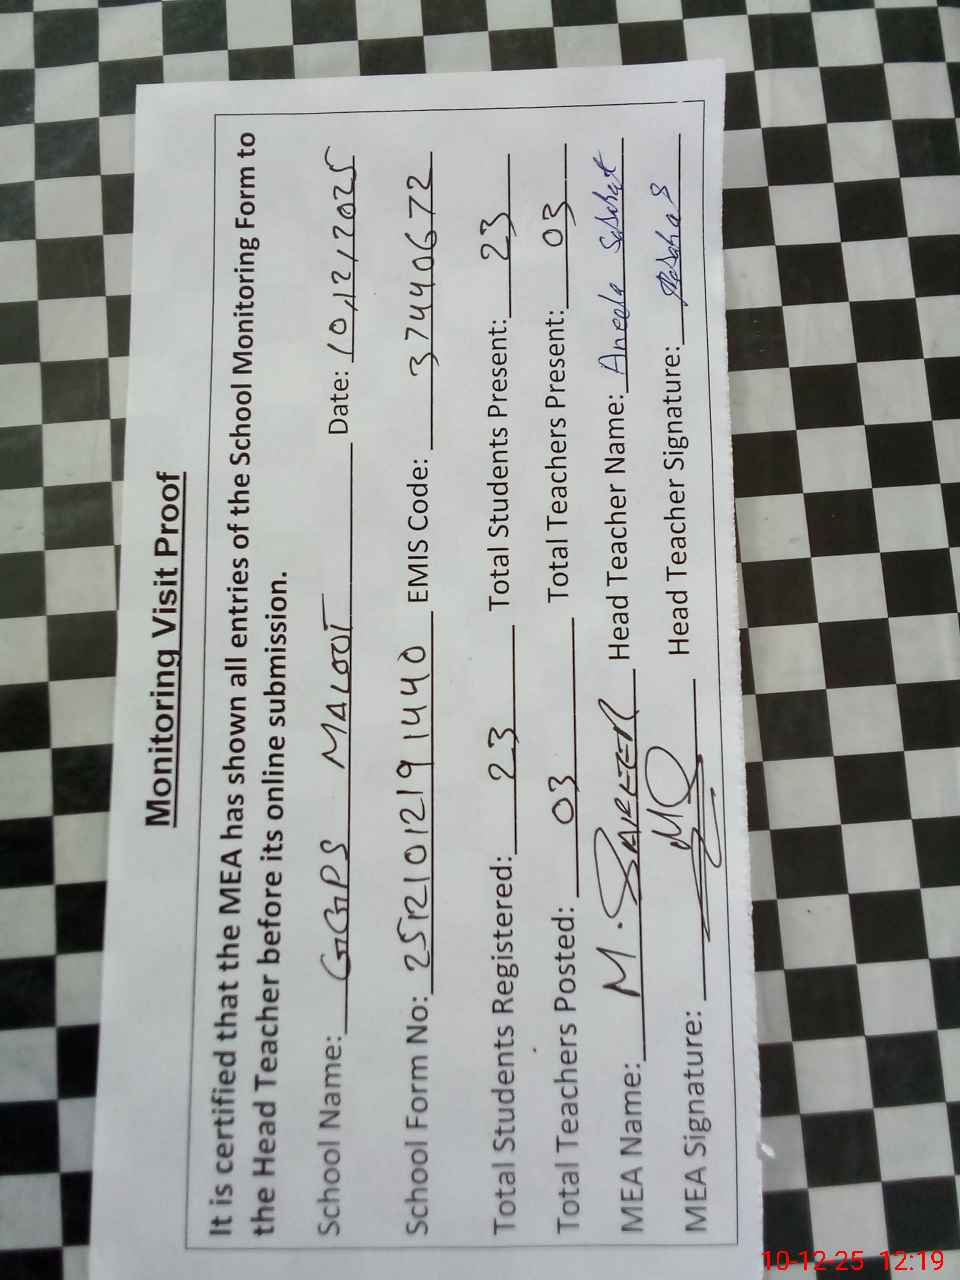 Monitoring Visit Proof
It is certified that the MEA has shown all entries of the School Monitoring Form to
the Head Teacher before its online submission.
School Name: GGPS MALOOT Date: 10/12/2025
School Form No: 25121012191440 EMIS Code: 37440672
Total Students Registered: 23 Total Students Present: 23
Total Teachers Posted: 03 Total Teachers Present: 03
MEA Name: M. Head Teacher Name: Aneela
MEA Signature: Head Teacher Signature:
10-12-25 12:19